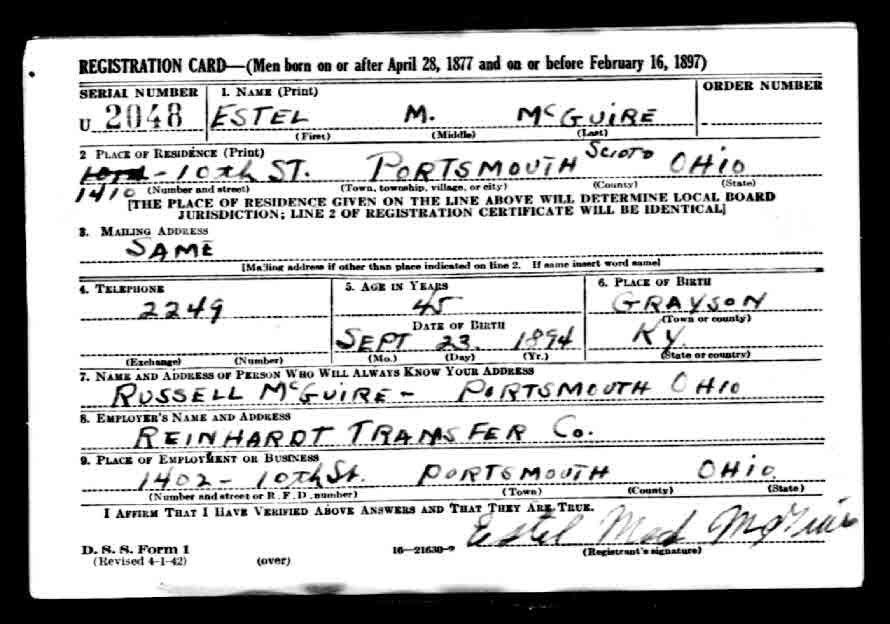 REGISTRATION CARD—(Men born on or after April 28, 1877 and on or before February 16, 1897)
SERIAL NUMBER 1. NAME (Print) ORDER NUMBER
U 2048 ESTEL M. McGUIRE
(First) (Middle) (Last)
2 PLACE OF RESIDENCE (Print)
1410 - 10th ST. PORTSMOUTH SCIOTO OHIO
(Number and street) (Town, township, village, or city) (County) (State)
[THE PLACE OF RESIDENCE GIVEN ON THE LINE ABOVE WILL DETERMINE LOCAL BOARD
JURISDICTION; LINE 2 OF REGISTRATION CERTIFICATE WILL BE IDENTICAL]
3. MAILING ADDRESS
SAME
[Mailing address if other than place indicated on line 2. If same insert word same]
4. TELEPHONE 5. AGE IN YEARS 6. PLACE OF BIRTH
2249 45 GRAYSON
(Town or county)
DATE OF BIRTH
SEPT 23 1894 KY.
(Exchange) (Number) (Mo.) (Day) (Yr.) (State or country)
7. NAME AND ADDRESS OF PERSON WHO WILL ALWAYS KNOW YOUR ADDRESS
RUSSELL McGUIRE - PORTSMOUTH OHIO
8. EMPLOYER'S NAME AND ADDRESS
REINHARDT TRANSFER Co.
9. PLACE OF EMPLOYMENT OR BUSINESS
1402 - 10th St. PORTSMOUTH OHIO
(Number and street or R.F.D. number) (Town) (County) (State)
I AFFIRM THAT I HAVE VERIFIED ABOVE ANSWERS AND THAT THEY ARE TRUE.
Estel Mad McGuire
D. S. S. Form 1 16—21630-2 (Registrant's signature)
(Revised 4-1-42) (over)